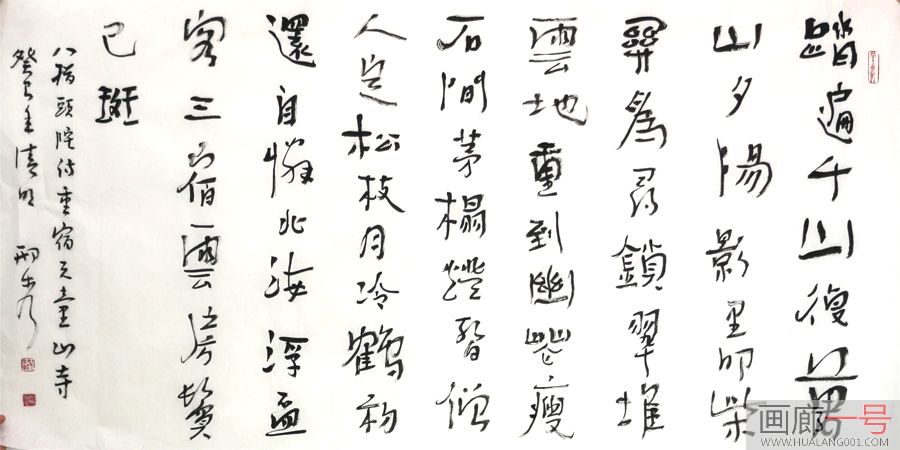 踏遍千山復萬
山夕陽影里叩柴
關為尋鎖翠堆
雲地重到幽岩瘦
石間茅榻燈昏僧
入定松枝月冷鶴初
還自慚北海浮盃
客三宿雲房鬢
已斑
八指頭陀詩重宿天童山寺
癸巳年清明
画廊一号
WWW.HUALANG001.COM